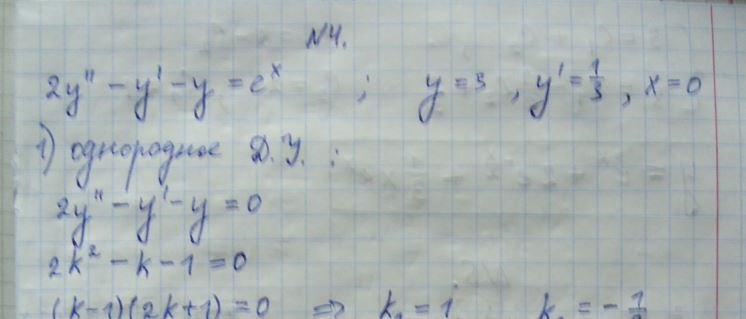 №4.
2y'' - y' - y = e^x ; y = 3, y' = 1/3, x = 0
1) однородное Д.У. :
2y'' - y' - y = 0
2k² - k - 1 = 0
(k-1)(2k+1) = 0 ⇒ k₁ = 1 k₂ = - 1/2